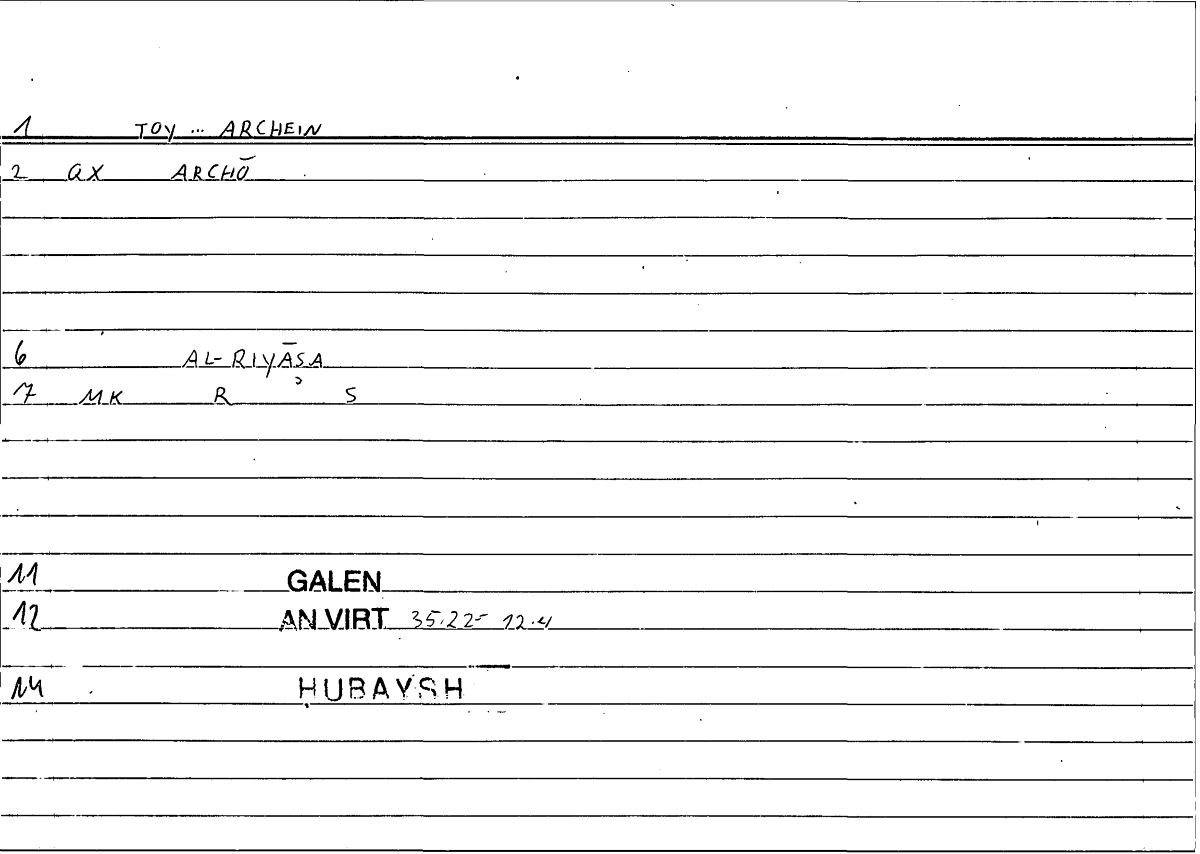 1 TOY ... ARCHEIN
2 QX ARCHŌ
6 AL-RIYĀSA
7 MK R ʾ S
11 GALEN
12 AN VIRT 35.22- 12.4
14 ḤUBAYSH